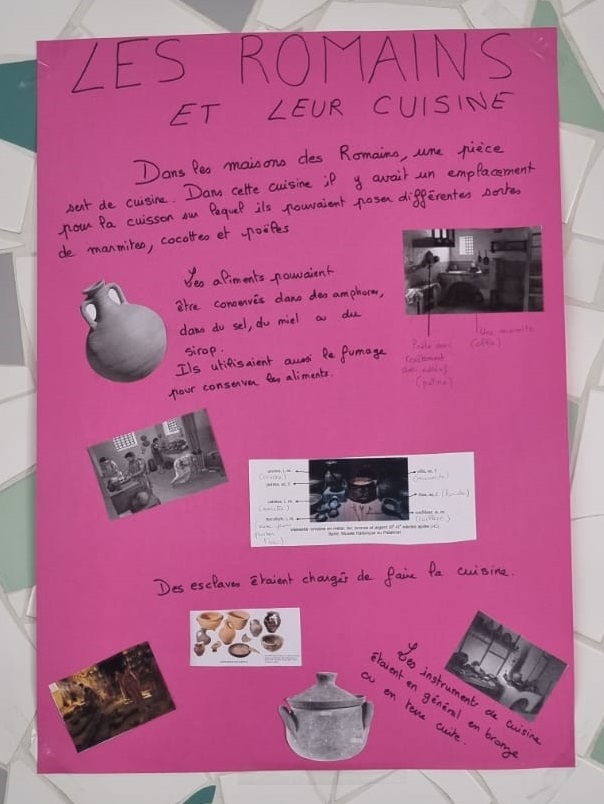 LES ROMAINS
ET LEUR CUISINE
Dans les maisons des Romains, une pièce
sert de cuisine. Dans cette cuisine il y avait un emplacement
pour la cuisson sur lequel ils pouvaient poser différentes sortes
de marmites, cocottes et poêles
Les aliments pouvaient
être conservés dans des amphores,
dans du sel, du miel ou du
sirop.
Ils utilisaient aussi le fumage
pour conserver les aliments.
Une marmite
(olla)
Poêle avec
revêtement
anti-adhésif
(patina)
Des esclaves étaient chargés de faire la cuisine.
Les instruments de cuisine
étaient en général en bronze
ou en terre cuite.